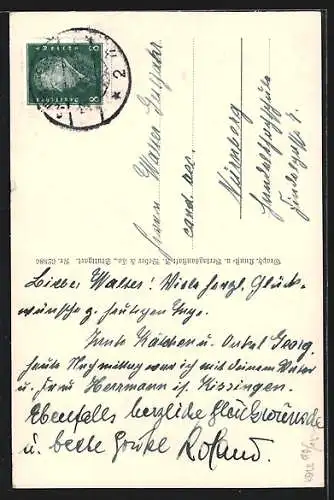 Deutsches Reich
8 8
* 2
Herrn Walter
cand. acc.
Nürnberg
Handelshochschule
Findelgasse 7.
Graph. Kunst- u. Verlagsanstalt A. Weber & Co., Stuttgart. Nr. 62886
Lieber Walter! Viele herzl. Glück-
wünsche z. heutigen Tage.
Tante Käthchen u. Onkel Georg.
Heute Nachmittag war ich mit deinem Vater
u. Frau Herrmann in Kissingen.
Ebenfalls herzliche Glückwünsche
u. beste Grüße Roland.